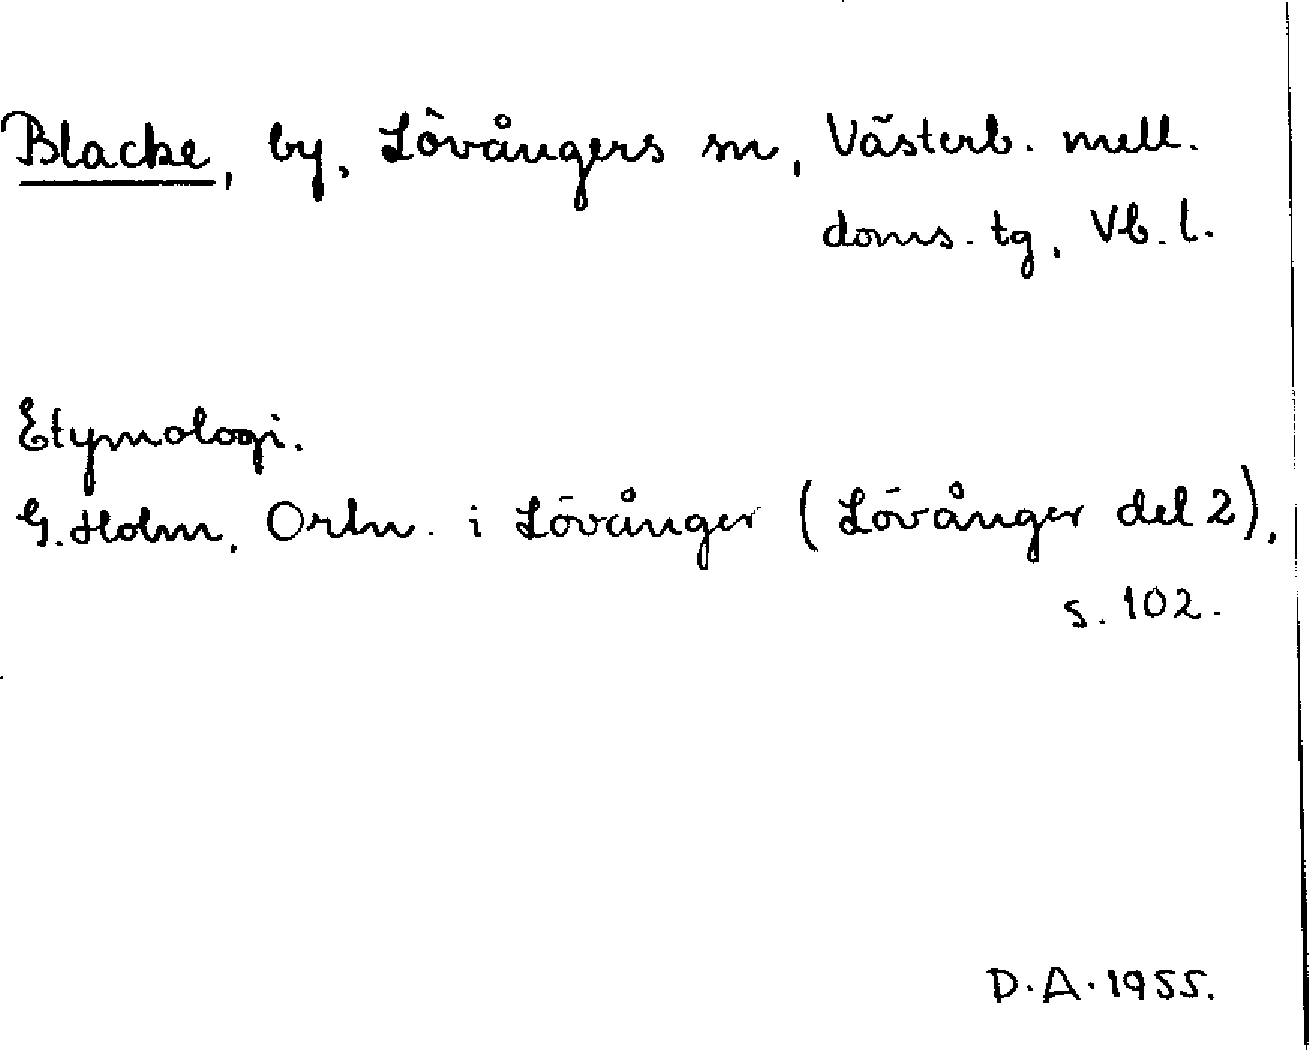 Blacke, by, Lövångers sn, Västerb. mell.
doms. tg, Vb. l.
Etymologi.
G. Holm, Ortn. i Lövånger (Lövånger del 2),
s. 102.
D.A. 1955.